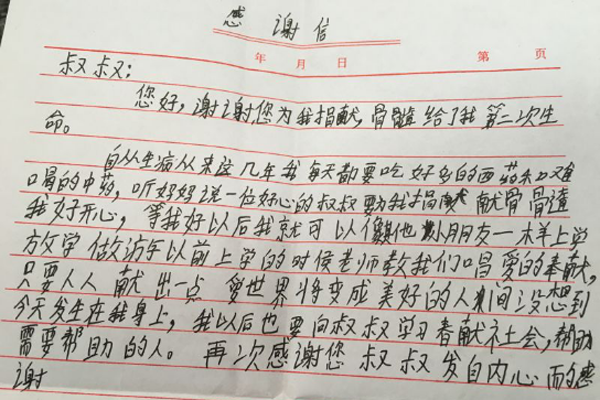 感谢信
年 月 日 第 页
叔叔:
您好,谢谢您为我捐献,骨髓给了我第二次生
命。
自从生病从来这几年我每天都要吃好多的西药和难
喝的中药,听妈妈说一位好心的叔叔要为我捐献骨髓
我好开心,等我好以后我就可以像其他小朋友一样上学
放学做访车以前上学的时侯老师教我们唱爱的奉献,
只要人人献出一点爱世界将变成美好的人间没想到
今天发生在我身上,我以后也要向叔叔学习奉献社会,帮助
需要帮助的人。再次感谢您叔叔发自内心而的感
谢